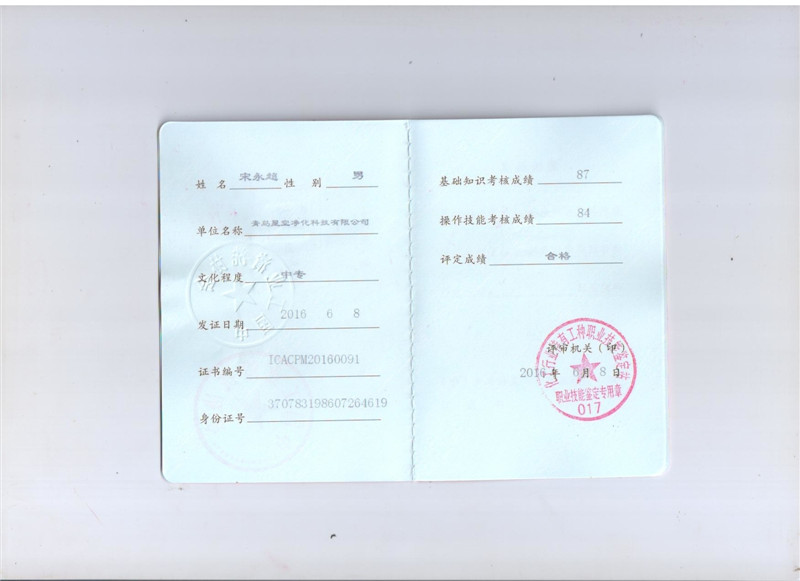 姓 名 宋永超 性 别 男
单位名称 青岛星宝净化科技有限公司
文化程度 中专
发证日期 2016 6 8
证书编号 ICACFM20160091
身份证号 370783198607264619
基础知识考核成绩 87
操作技能考核成绩 84
评定成绩 合格
评审机关（印）
2016 年 6 月 8 日
职业技能鉴定专用章
017